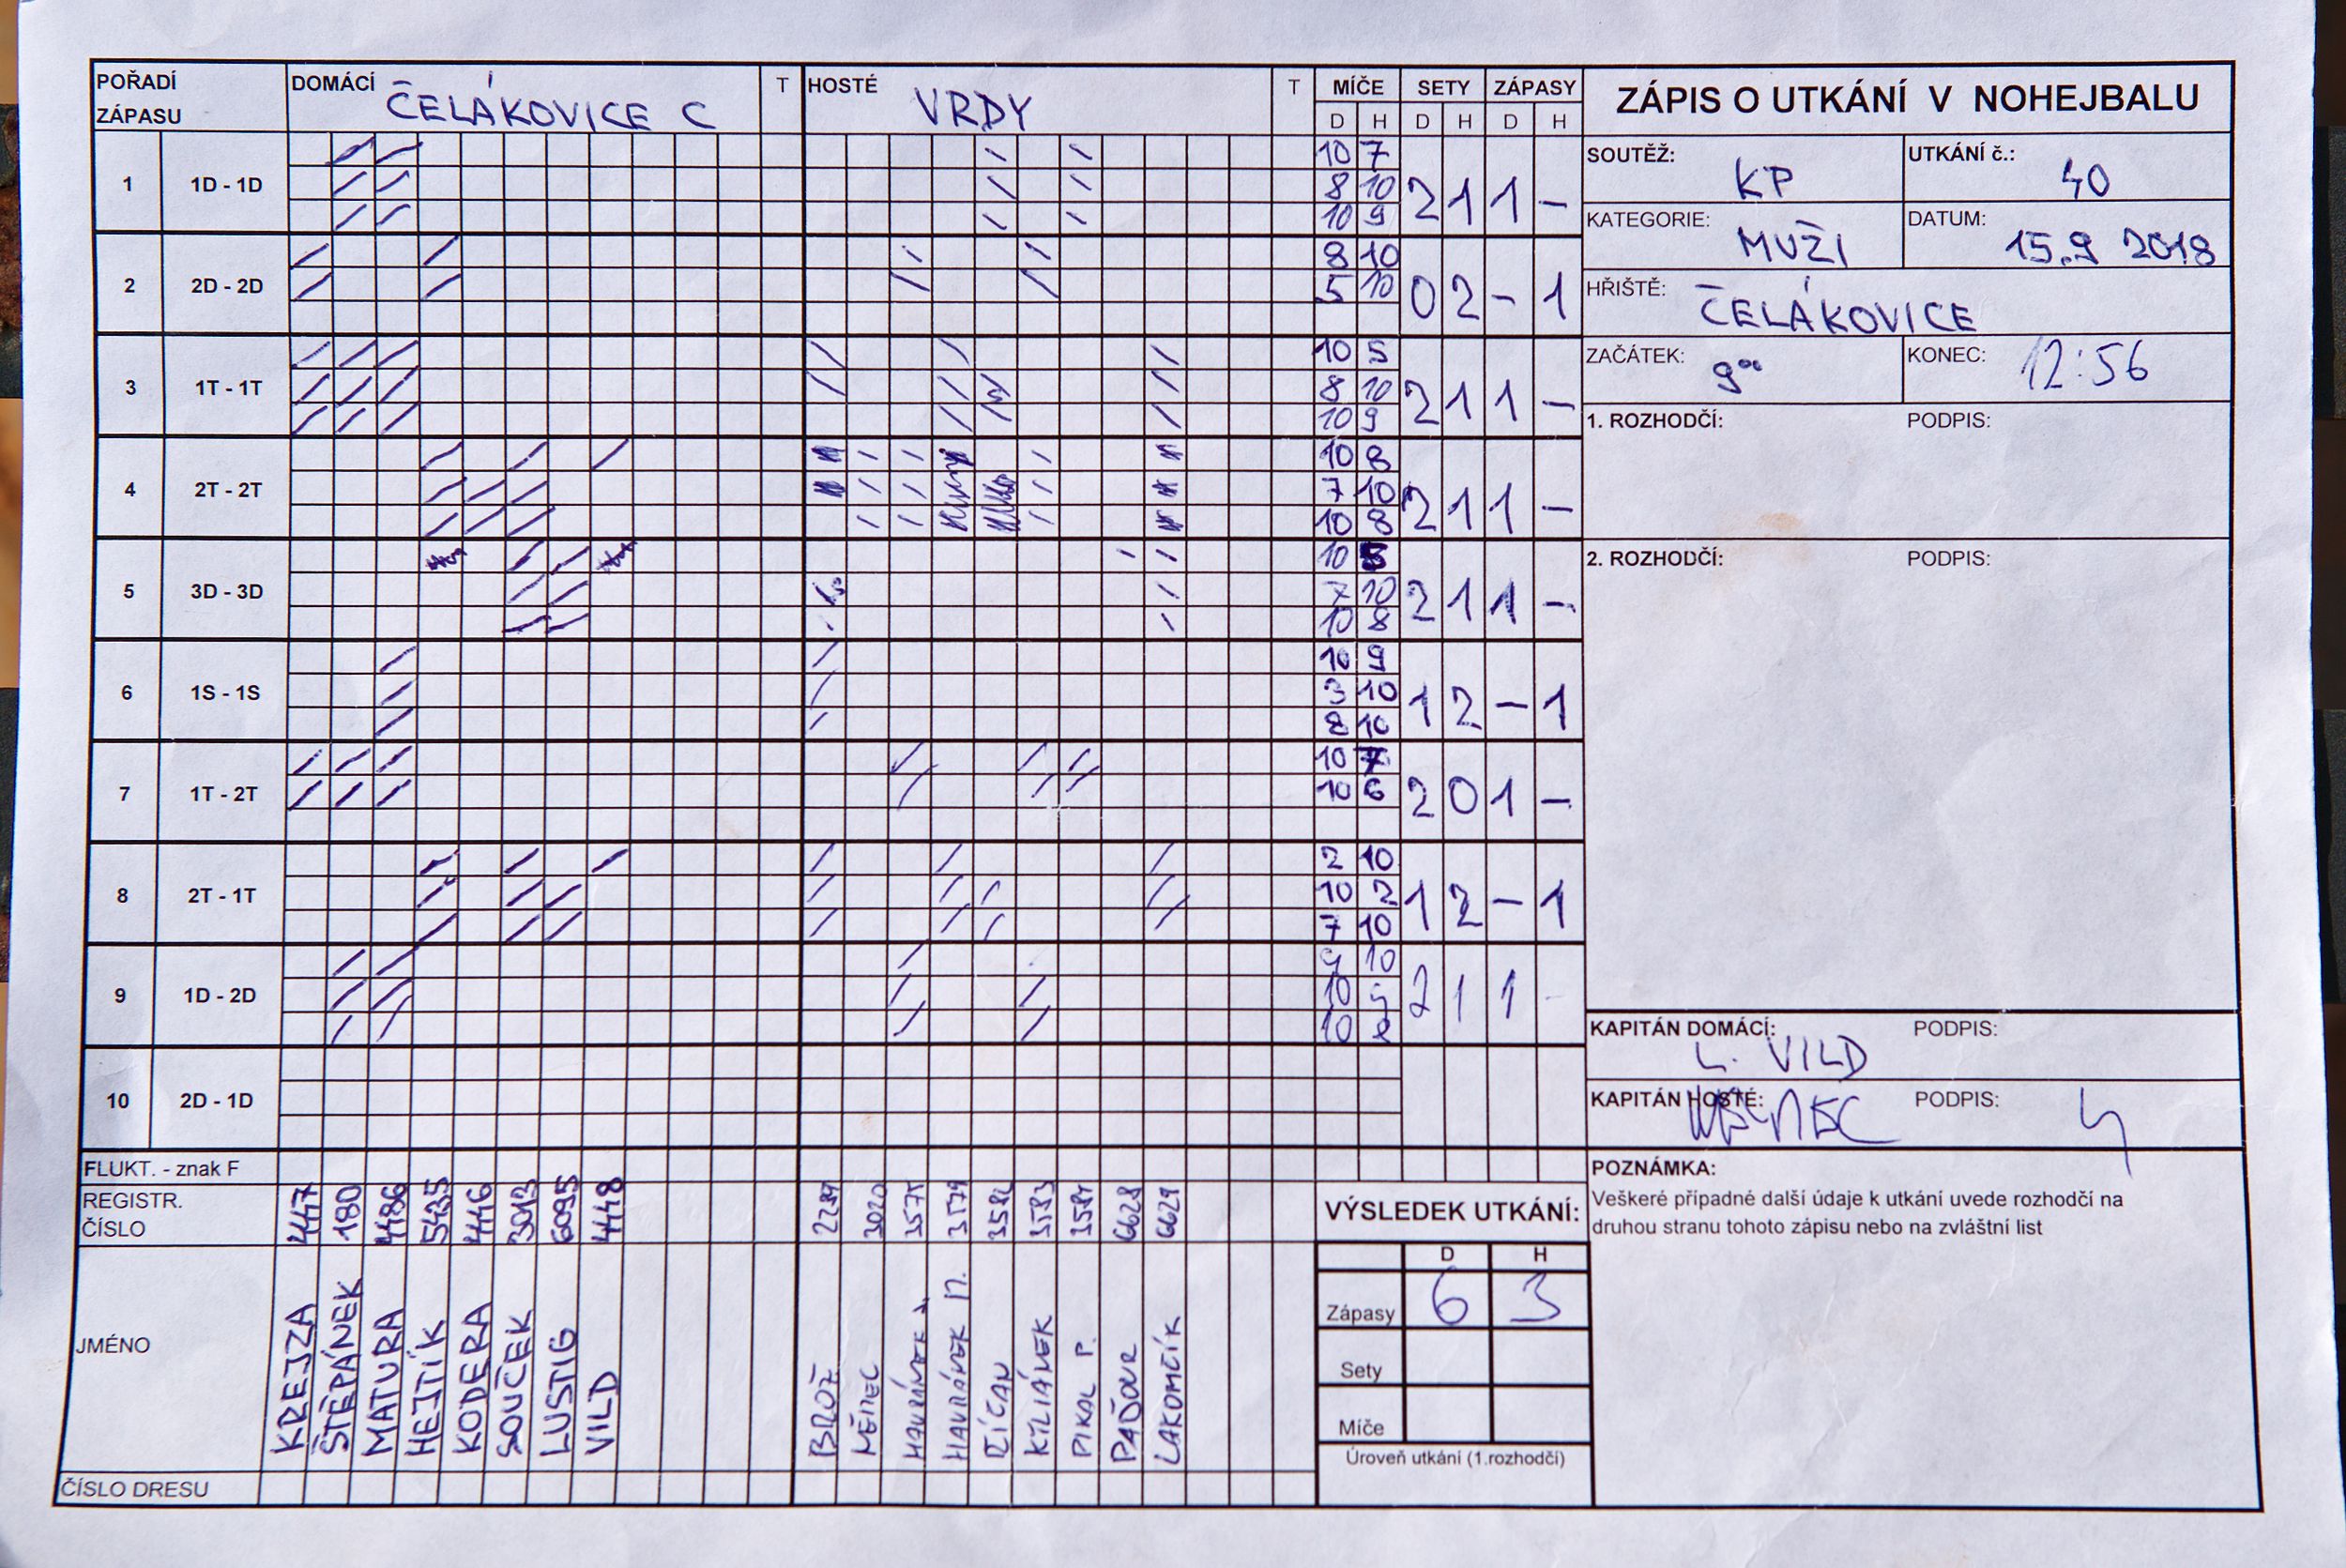 POŘADÍ ZÁPASU DOMÁCÍ ČELÁKOVICE C T HOSTÉ VRDY T MÍČE SETY ZÁPASY
D H D H D H
ZÁPIS O UTKÁNÍ V NOHEJBALU
SOUTĚŽ: KP UTKÁNÍ č.: 40
KATEGORIE: MUŽI DATUM: 15.9 2018
HŘIŠTĚ: ČELÁKOVICE
ZAČÁTEK: 9°° KONEC: 12:56
1. ROZHODČÍ: PODPIS:
2. ROZHODČÍ: PODPIS:
KAPITÁN DOMÁCÍ: L. VILD PODPIS:
KAPITÁN HOSTÉ: PODPIS:
POZNÁMKA:
Veškeré případné další údaje k utkání uvede rozhodčí na
druhou stranu tohoto zápisu nebo na zvláštní list
1 1D - 1D
10 7
8 10
10 9
2 1 1 –
2 2D - 2D
8 10
5 10
0 2 – 1
3 1T - 1T
10 5
8 10
10 9
2 1 1 –
4 2T - 2T
10 8
7 10
10 8
2 1 1 –
5 3D - 3D
10
7 10
10 8
2 1 1 –
6 1S - 1S
10 9
3 10
8 10
1 2 – 1
7 1T - 2T
10 7
10 6
2 0 1 –
8 2T - 1T
2 10
10 2
7 10
1 2 – 1
9 1D - 2D
9 10
10
10 8
2 1 1 -
10 2D - 1D
FLUKT. - znak F
REGISTR.
ČÍSLO
447 180 4486 5435 4446 3013 6095 4448
3020 3579 3583 6628 6629
JMÉNO
KREJZA
ŠTĚPÁNEK
MATURA
HEJTÍK
KODERA
SOUČEK
LUSTIG
VILD
BROŽ
MĚNEC
HAVRÁNEK
HAVRÁNEK
ŘÍČAN
KILIÁNEK
PIKAL P.
PAĎOUR
LAKOMČÍK
ČÍSLO DRESU
VÝSLEDEK UTKÁNÍ:
D H
Zápasy 6 3
Sety
Míče
Úroveň utkání (1.rozhodčí)